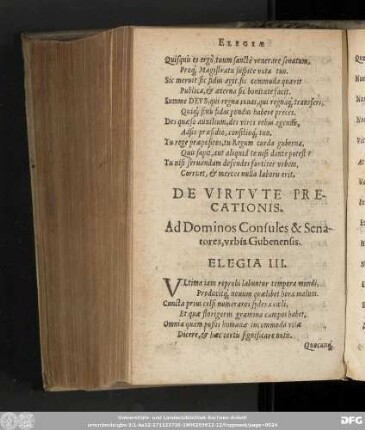 ELEGIÆ
Quisquis es ergò, tuum sanctè venerare senatum,
Proq́; Magistratu suscipe vota tuo.
Sic meruit sic fidus agit, sic commoda quærit
Publica, & æterna sic bonitate facit.
Summe DEUS, qui regna novas, qui regnaq́; transfers,
Quiq́; sinu fidas pondus habere preces.
Des quæso auxilium, des vires rebus agendis,
Adsis præsidio, consilioq́; tuo.
Tu rege præpositos, tu Regum corda guberna,
Quis sapit, aut aliquid te nisi dante potest?
Tu nisi servandam defendes fortiter urbem,
Corruet, & merces nulla laboris erit.
DE VIRTVTE PRE-
CATIONIS.
Ad Dominos Consules & Sena-
tores, urbis Gubenensis.
ELEGIA III.
VLtima iam reprobi labuntur tempora mundi,
Producitq́; novum quælibet hora malum.
Cuncta prius celsi numerares sydera cæli,
Et quæ florigerus gramina campus habet,
Omnia quàm possis humanæ incommoda vitæ
Dicere, & hæc certis significare notis.
Quacunq́;
Universitäts- und Landesbibliothek Sachsen-Anhalt
DFG